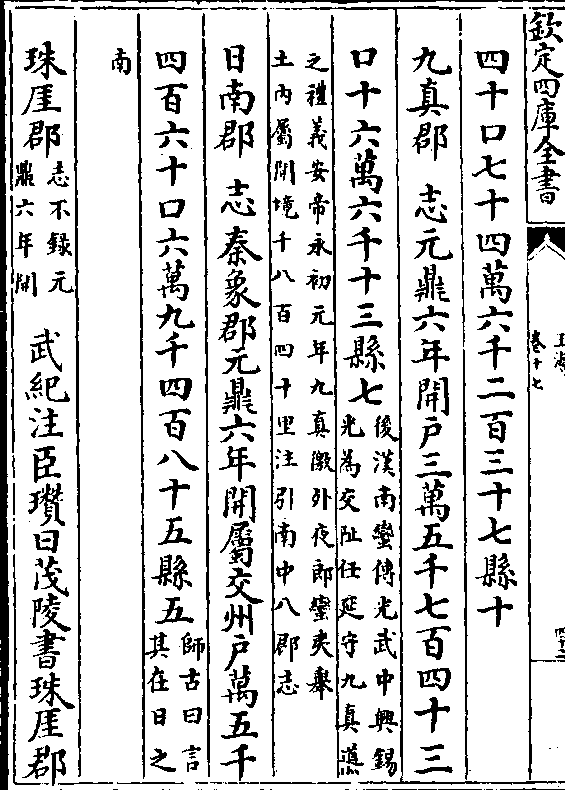 欽定四庫全書
玉海
卷十七
四十口七十四萬六千二百三十七縣十
九真郡 志元鼎六年開戶三萬五千七百四十三
口十六萬六千十三縣七後漢南蠻傳光武中興錫
光為交阯任延守九真導
之禮義安帝永初元年九真徼外夜郎蠻夷舉
土內屬開境千八百四十里注引南中八郡志
日南郡 志秦象郡元鼎六年開屬交州戶萬五千
四百六十口六萬九千四百八十五縣五師古曰言
其在日之
南
珠厓郡志不錄元
鼎六年開 武紀注臣瓚曰茂陵書珠厓郡